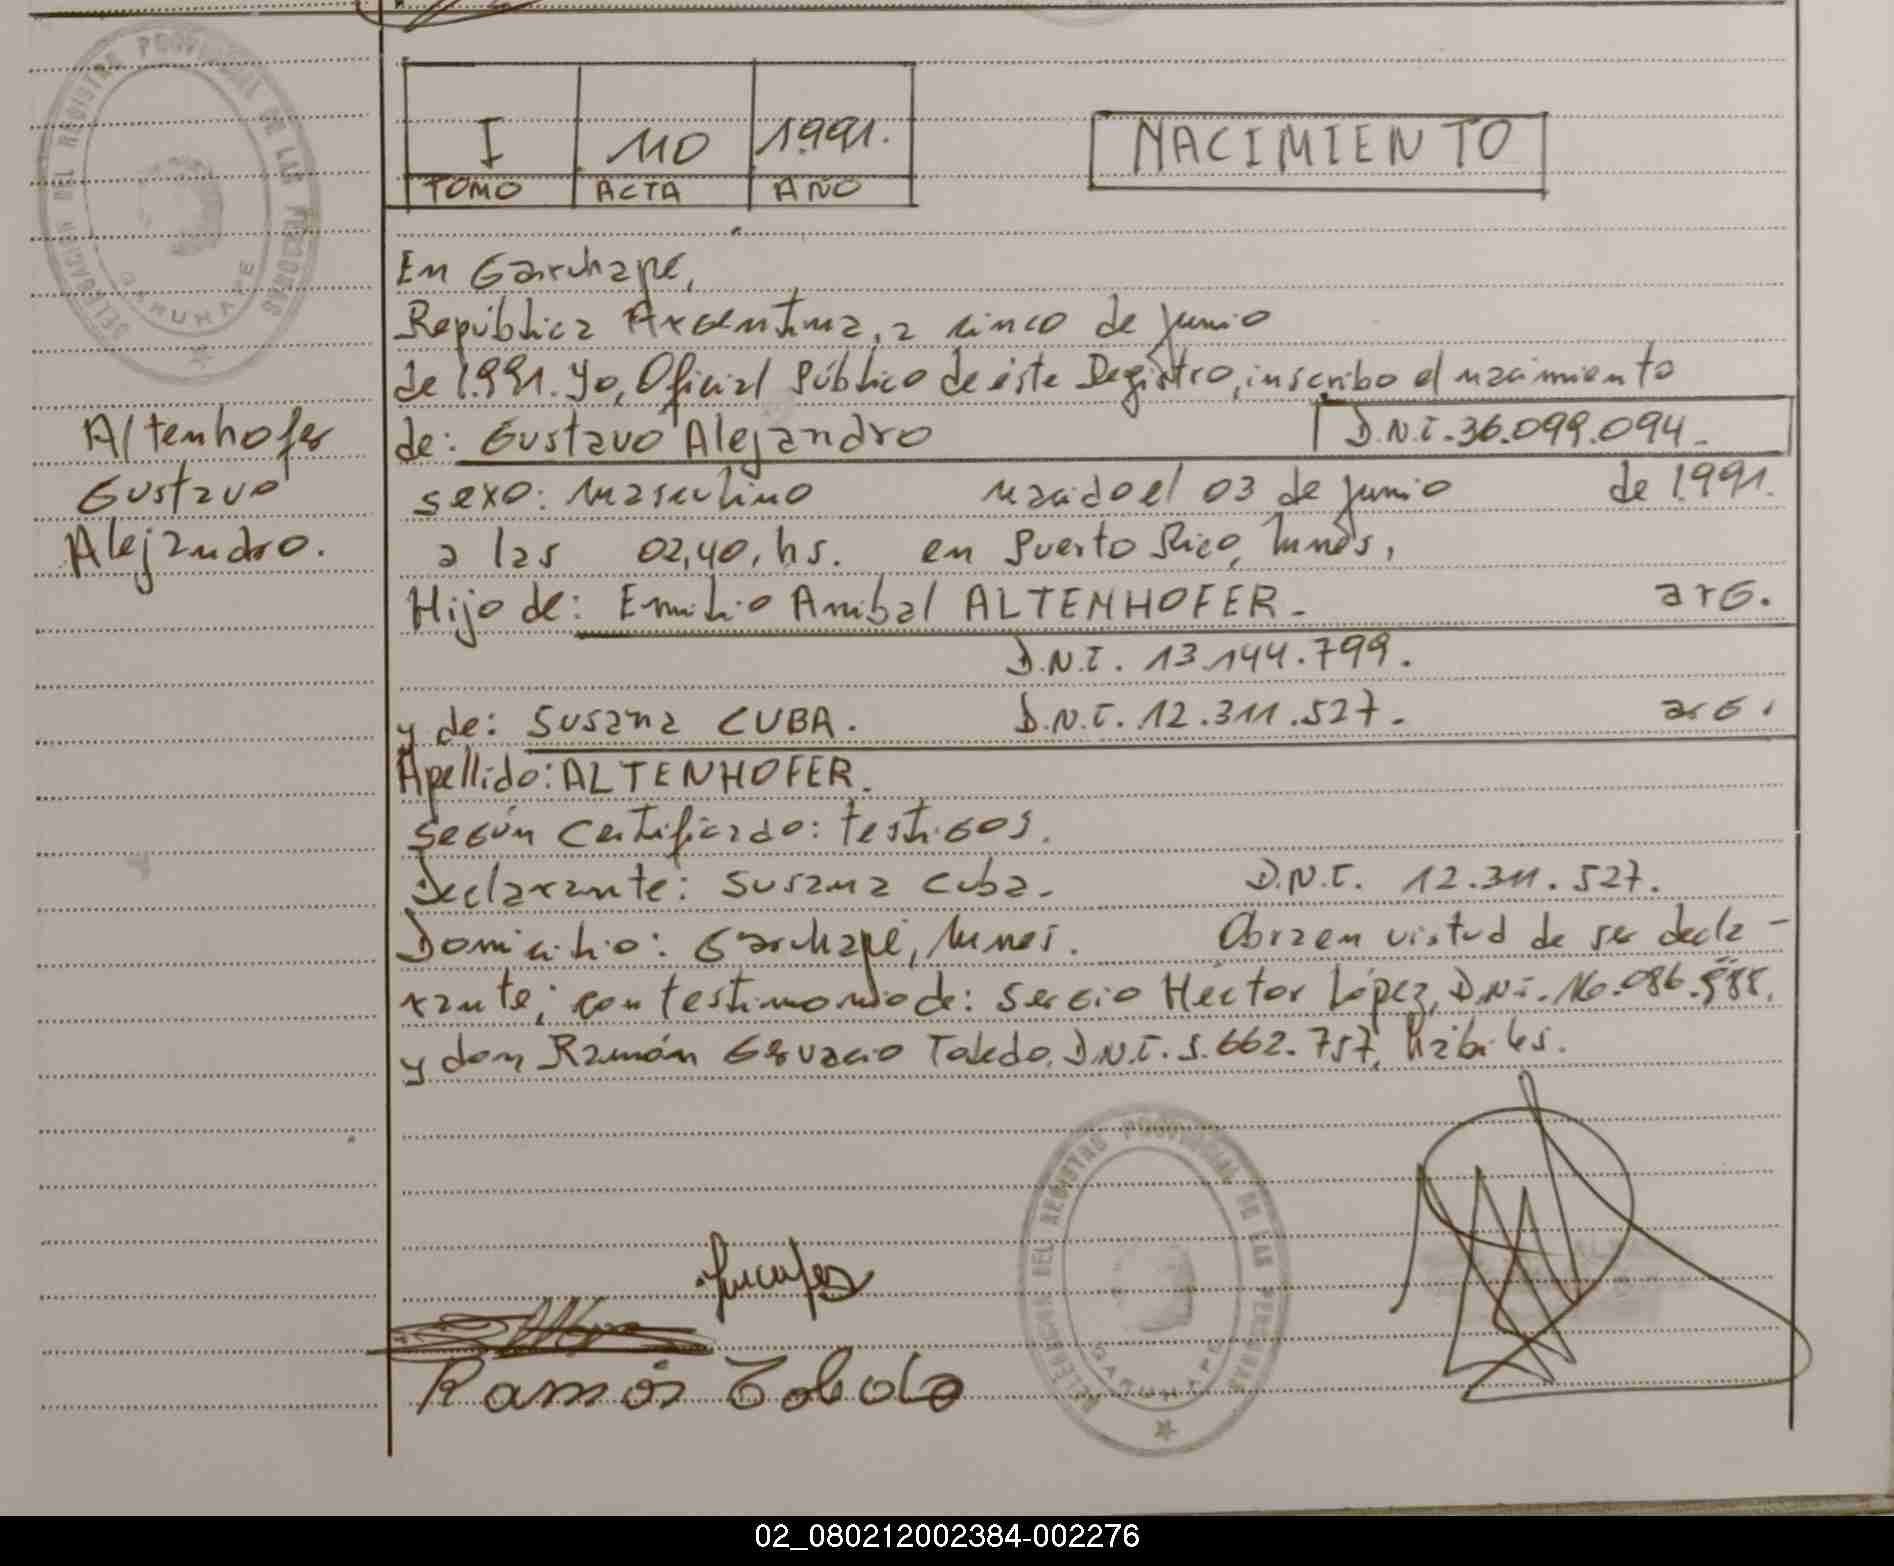 DELEGACION DEL REGISTRO PROVINCIAL DE LAS PERSONAS
GARUHAPE
I 110 1.991.
TOMO ACTA AÑO
NACIMIENTO
En Garuhapé,
República Argentina, a cinco de junio
de 1.991. Yo, Oficial Público de éste Registro, inscribo el nacimiento
Altenhofer
Gustavo
Alejandro.
de: Gustavo Alejandro D.N.I. 36.099.094.-
sexo: masculino nacido el 03 de junio de 1.991.
a las 02,40, hs. en Puerto Rico,
Hijo de: Emilio Anibal ALTENHOFER.- arg.
D.N.I. 13.144.799.
y de: Susana CUBA. D.N.I. 12.311.527. arg.
Apellido: ALTENHOFER.
según Certificado: testigos.
Declarante: Susana Cuba. D.N.I. 12.311.527.
Domicilio: Garuhapé, Obra en virtud de ser decla-
rante; con testimonio de: Sergio Héctor López, D.N.I. 16.086.
y don Ramón Gervacio Toledo, D.N.I. 5.662.757, hábiles.
DELEGACION DEL REGISTRO PROVINCIAL DE LAS PERSONAS
GARUHAPE
Ramón Toledo
02_080212002384-002276